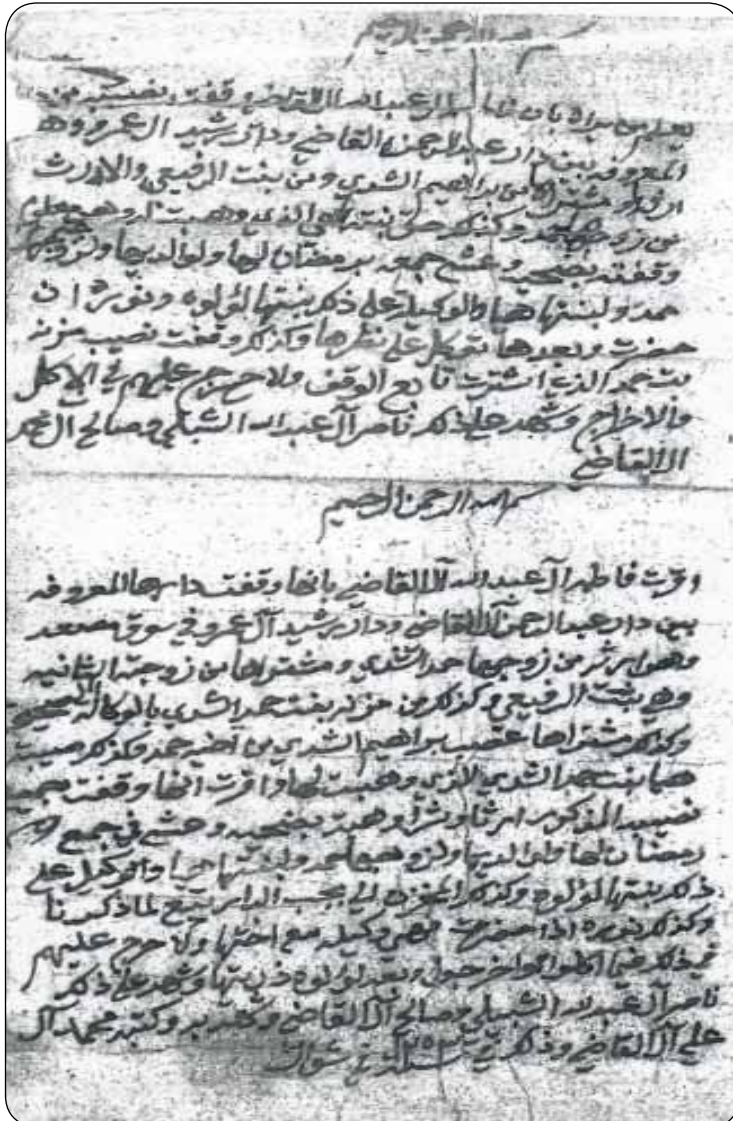 بسم الله الرحمن الرحيم
يعلم من يراه بان فاطمة ال عبدالله القاضي وقفت نصيبه من
المعروفه بين دار عبدالرحمن القاضي ودار رشيد ال عمرو وه
ابراهيم الشدي ومن بنت الرفيعي والا ارث
من زوجها حمد وكذلك حق بنته الذي وهبت
وقفته بضحيه وعشي جمعه برمضان لها ولوالديها ولزوجها
حمد ولبنتها هيا والوكيله على ذلك بنتها لؤلوه ونوره ان
حضرت وبعدها توكل على نظرها وكذلك وقفت نصيب مزنه
بنت حمد الذي اشترت تابع الوقف ولا حرج عليهم في الاكل
والاخراج وشهد على ذلك ناصر آل عبدالله الشبيلي وصالح ال
ال القاضي
بسم الله الرحمن الرحيم
اقرت فاطمه آل عبدالله آل القاضي بانها وقفت دارها المعروفه
بين دار عبدالرحمن آل القاضي ودار رشيد آل عمرو في سوق
وهو ارث من زوجها حمد الشدي ومشتراها من زوجته الثانيه
وهي بنت الرفيعي وكذلك من مزنه بنت حمد الشدي بالوكاله
وكذلك مشتراها عصب براهيم الشدي من اخيه حمد وكذلك
هيا بنت حمد الشدي الذي وهبت لها واقرت انها وقفت جميع
نصيبه المذكور ارث وشرا وهبة بضحيه وعشي في جمع
رمضان لها ولوالديها ولزوجها حمد ولبنتها هيا والوكيل على
ذلك بنتها لؤلوه وكذلك المخزن الي بجب الدار تبع لما ذكرنا
وكذلك نوره اذا حضرت فهي وكيله مع اختها ولا حرج عليهم
في ذلك فيما اكلوا واخرجوا وبعد لؤلوه ذريتها وشهد على ذلك
ناصر آل عبدالله الشبيلي وصالح آل القاضي وشهد به وكتبه محمد آل
علي آل القاضي وذلك في شوال